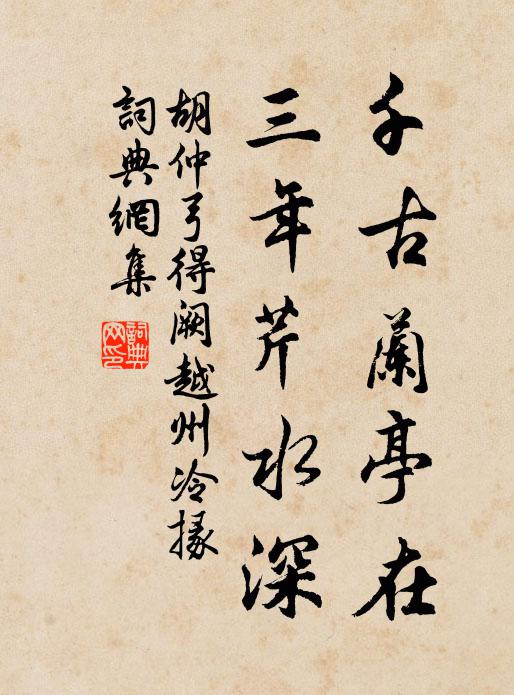 千古蘭亭在
三年芹水深
胡仲弓得闕越州冷掾
詞典網集
詞典
网印